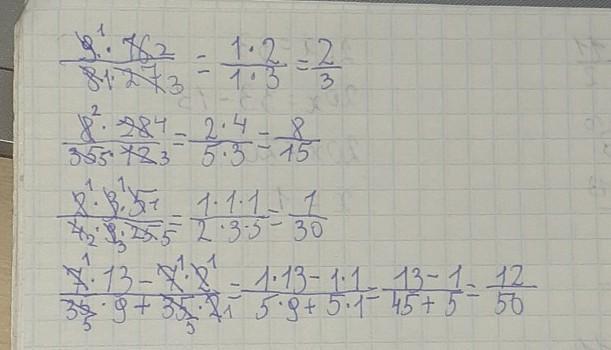 9¹·16 2 / 81·27 3 = 1·2 / 1·3 = 2/3
8²·28 4 / 35 5·12 3 = 2·4 / 5·3 = 8/15
2¹·3¹·5 1 / 4 2·9 3·25 5 = 1·1·1 / 2·3·5 = 1/30
7¹·13 - 7¹·2¹ / 35 5·9 + 35 5·2 1 = 1·13 - 1·1 / 5·9 + 5·1 = 13 - 1 / 45 + 5 = 12/50